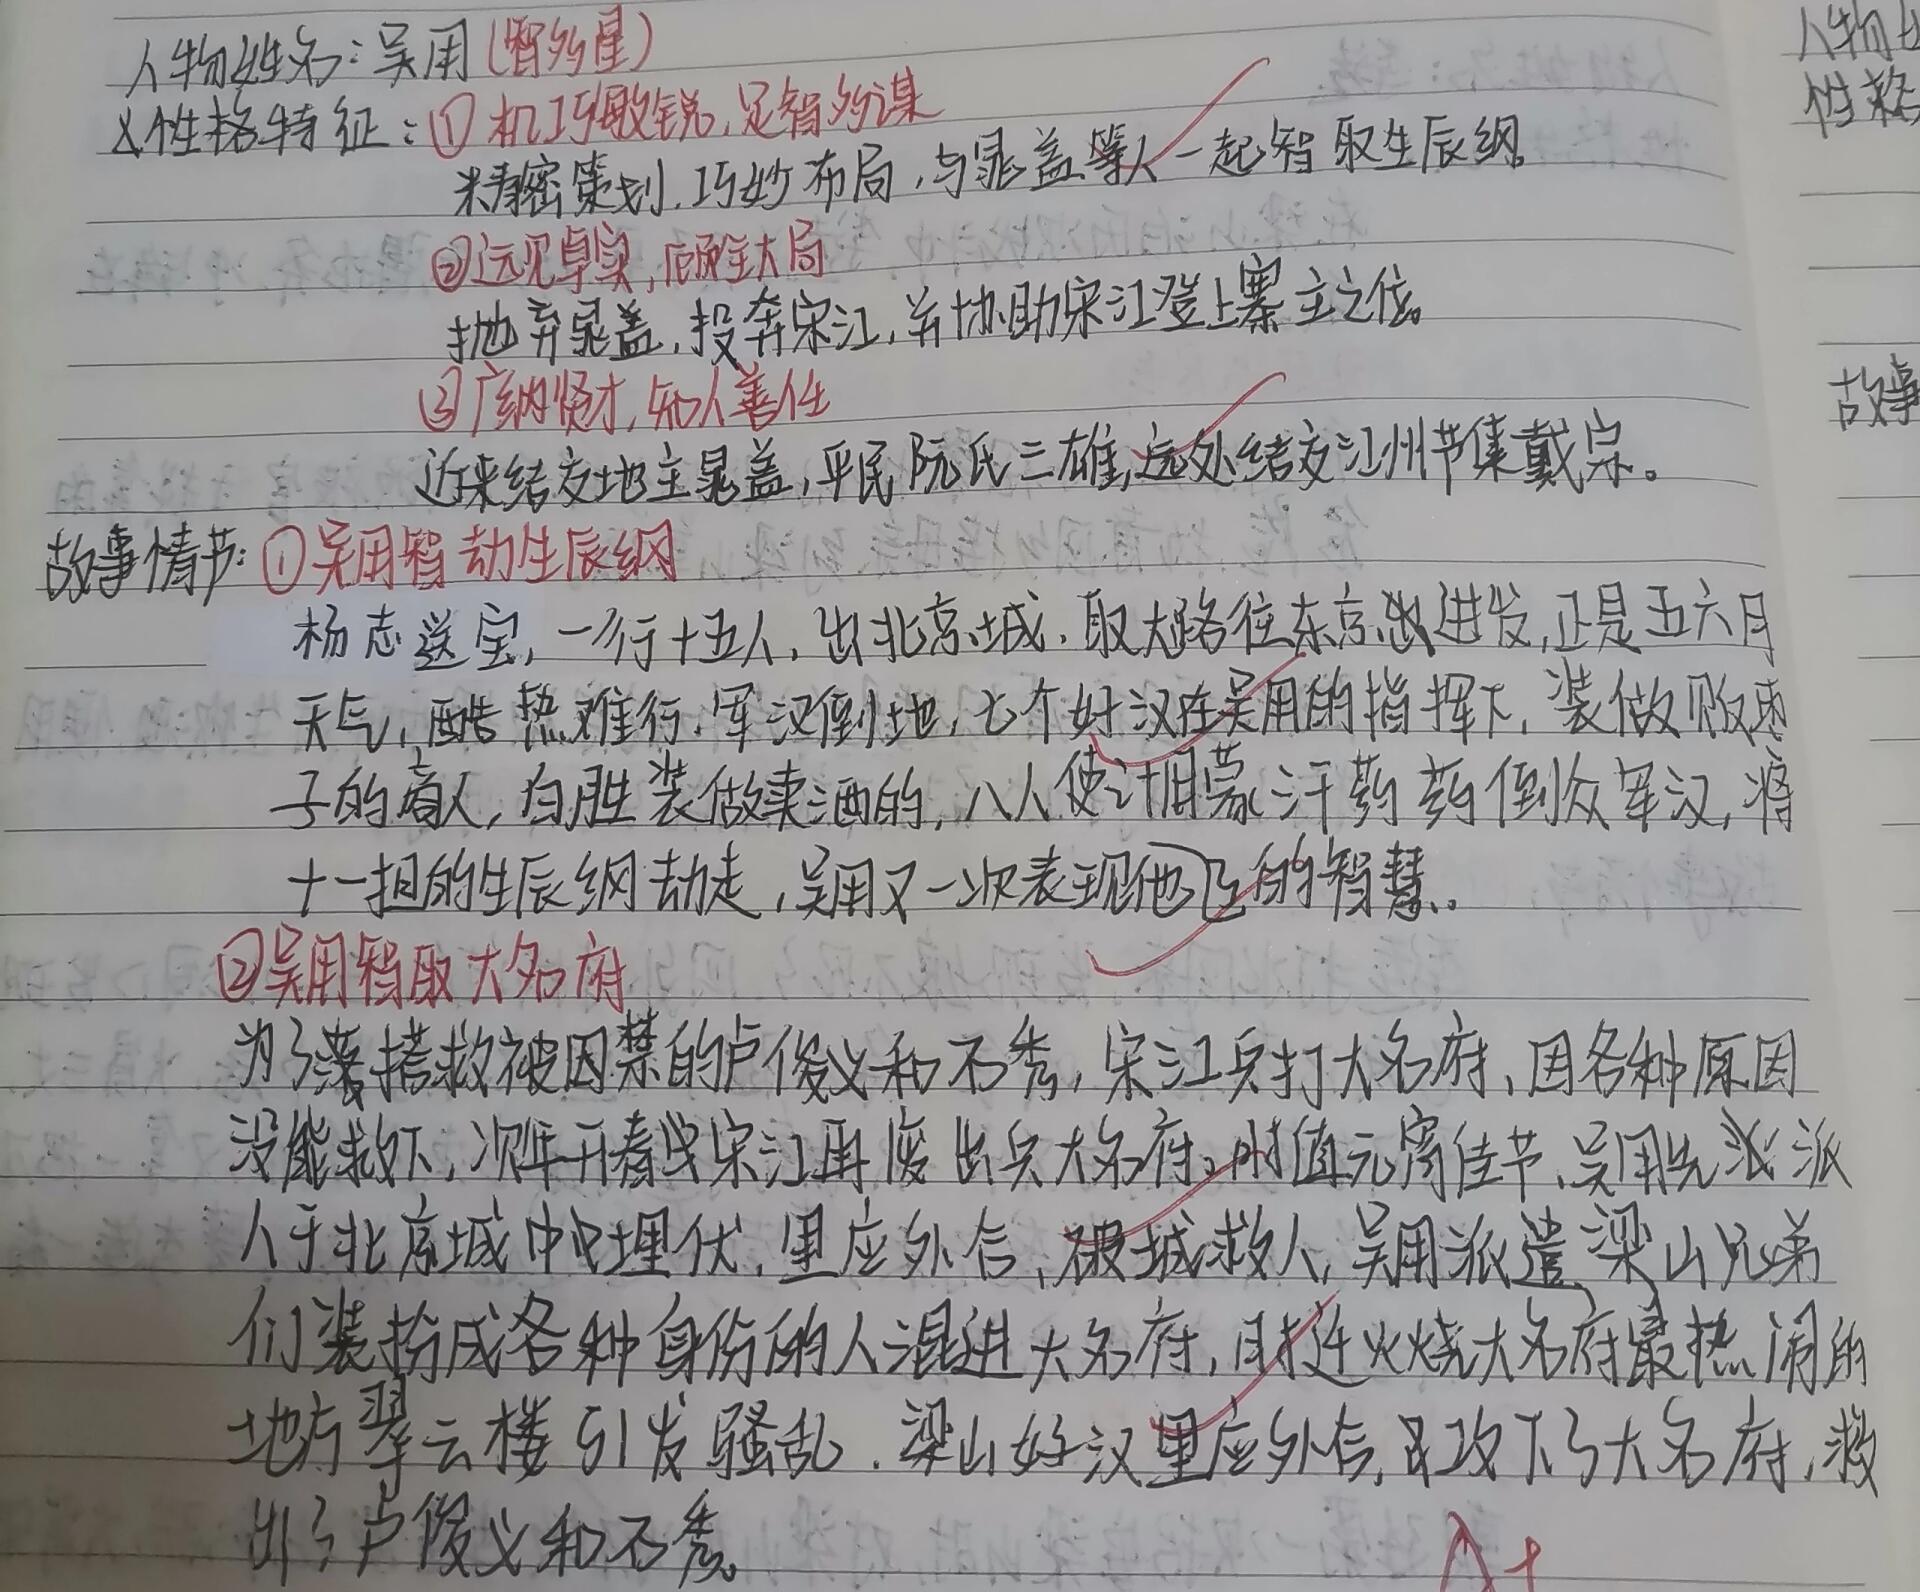 人物姓名：吴用(智多星)
性格特征：①机巧敏锐，足智多谋
精密策划，巧妙布局，与晁盖等人一起智取生辰纲。
②远见卓实，顾全大局
抛弃晁盖，投奔宋江，并协助宋江登上寨主之位。
③广纳贤才，知人善任
近来结交地主晁盖，平民阮氏三雄，远处结交江州节集戴宗。
故事情节：①吴用智劫生辰纲
杨志送宝，一行十五人，出北京城，取大路往东京进发，正是五六月
天气，酷热难行，军汉倒地，七个好汉在吴用的指挥下，装做贩枣
子的商人，白胜装做卖酒的，八人使计用蒙汗药药倒众军汉，将
十一担的生辰纲劫走，吴用又一次表现他的智慧。
②吴用智取大名府
为了搭救被囚禁的卢俊义和石秀，宋江兵打大名府，因各种原因
没能救下，次年开春宋江再度出兵大名府，时值元宵佳节，吴用先派
人于北京城中埋伏，里应外合，破城救人，吴用派遣梁山兄弟
们装扮成各种身份的人混进大名府，时迁火烧大名府最热闹的
地方翠云楼引发骚乱，梁山好汉里应外合，攻下了大名府，救
出了卢俊义和石秀。
A+
人物
性格
故事